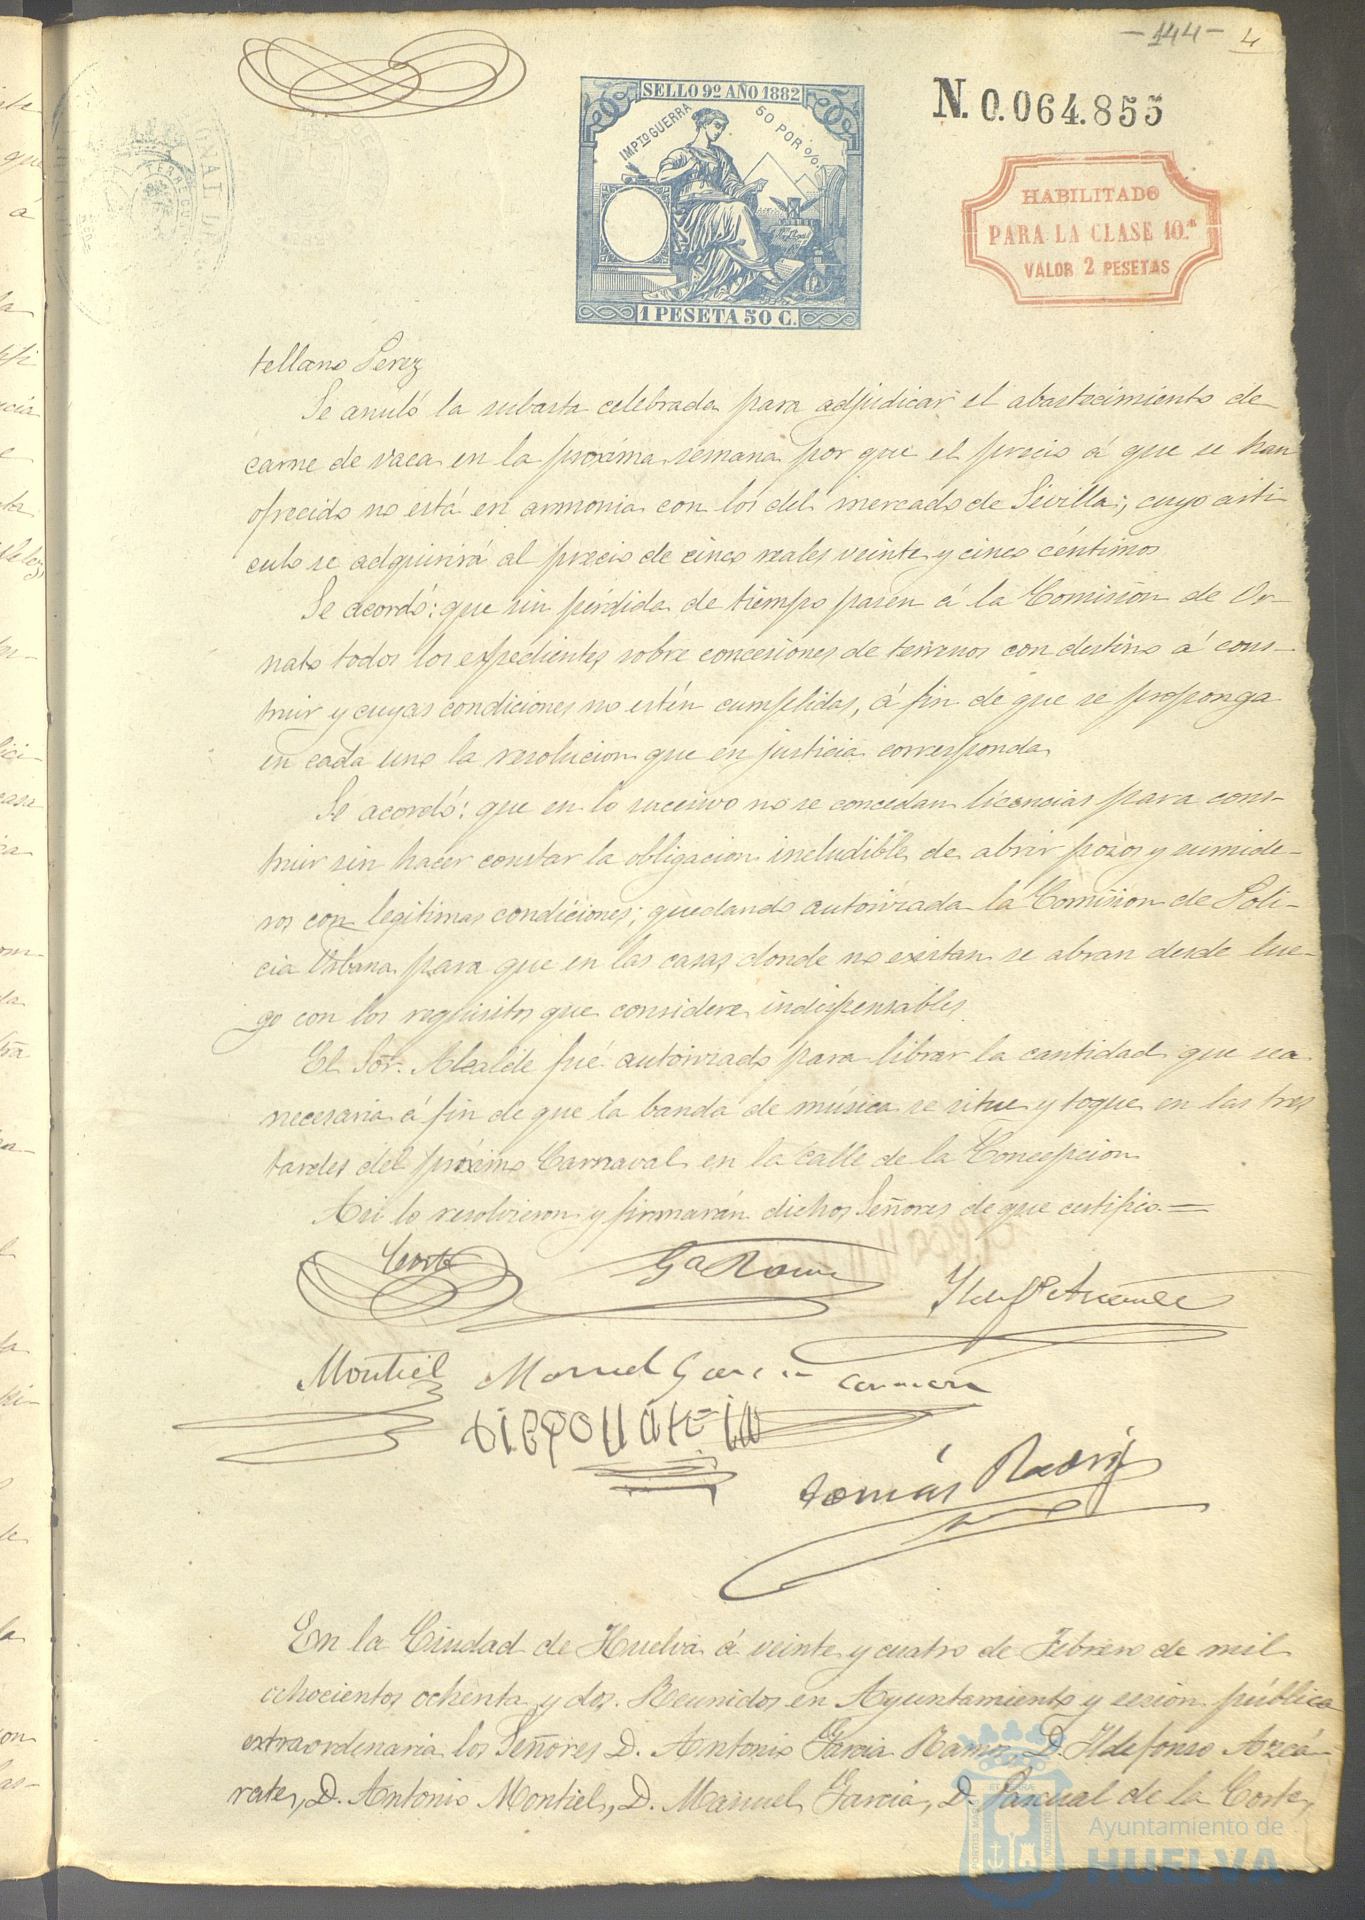 -144- 4
SELLO 9º AÑO 1882
IMPTO GUERRA 50 POR %
1 PESETA 50 C.
N. 0.064.855
HABILITADO
PARA LA CLASE 10.ª
VALOR 2 PESETAS
tellano Perez
Se anuló la subasta celebrada para adjudicar el abastecimiento de
carne de vaca en la proxima semana por que el precio á que se han
ofrecido no está en armonia con los del mercado de Sevilla; cuyo arti
culo se adquirirá al precio de cinco reales veinte y cinco céntimos
Se acordó: que sin pérdida de tiempo pasen á la Comisión de Or-
nato todos los expedientes sobre concesiones de terrenos con destino á cons-
truir y cuyas condiciones no estén cumplidas, á fin de que se proponga
en cada uno la resolucion que en justicia corresponda
Se acordó: que en lo sucesivo no se concedan licencias para cons-
truir sin hacer constar la obligacion ineludible de abrir pozos y sumide-
ros con legitimas condiciones; quedando autorizada la Comision de Poli-
cia Urbana para que en las casas donde no existan se abran desde lue-
go con los requisitos que considere indispensables
El Sor. Alcalde fué autorizado para librar la cantidad que sea
necesaria á fin de que la banda de música se situe y toque en las tres
tardes del próximo Carnaval en la calle de la Concepcion
Asi lo resolvieron y firmarán dichos Señores de que certifico =
Corte Ga Ramos Ildefº Azcarate
Montiel Manuel Garcia
Tomás Rodri
En la Ciudad de Huelva á veinte y cuatro de Febrero de mil
ochocientos ochenta y dos. Reunidos en Ayuntamiento y sesion pública
extraordinaria los Señores D. Antonio Garcia Ramos, D. Ildefonso Azcá-
rate, D. Antonio Montiel, D. Manuel Garcia, D. Pascual de la Corte,
Ayuntamiento de
HUELVA